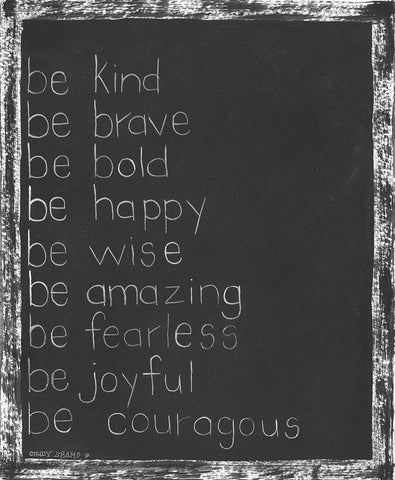 be kind
be brave
be bold
be happy
be wise
be amazing
be fearless
be joyful
be couragous
CINDY SHAMP ©